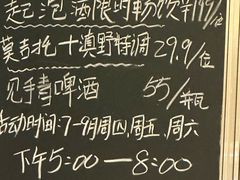 起泡酒限时畅饮 199/位
莫吉托十滇野特调 29.9/位
见手青啤酒 55/瓶
活动时间:7-9月周四、周五、周六
下午5:00—8:00